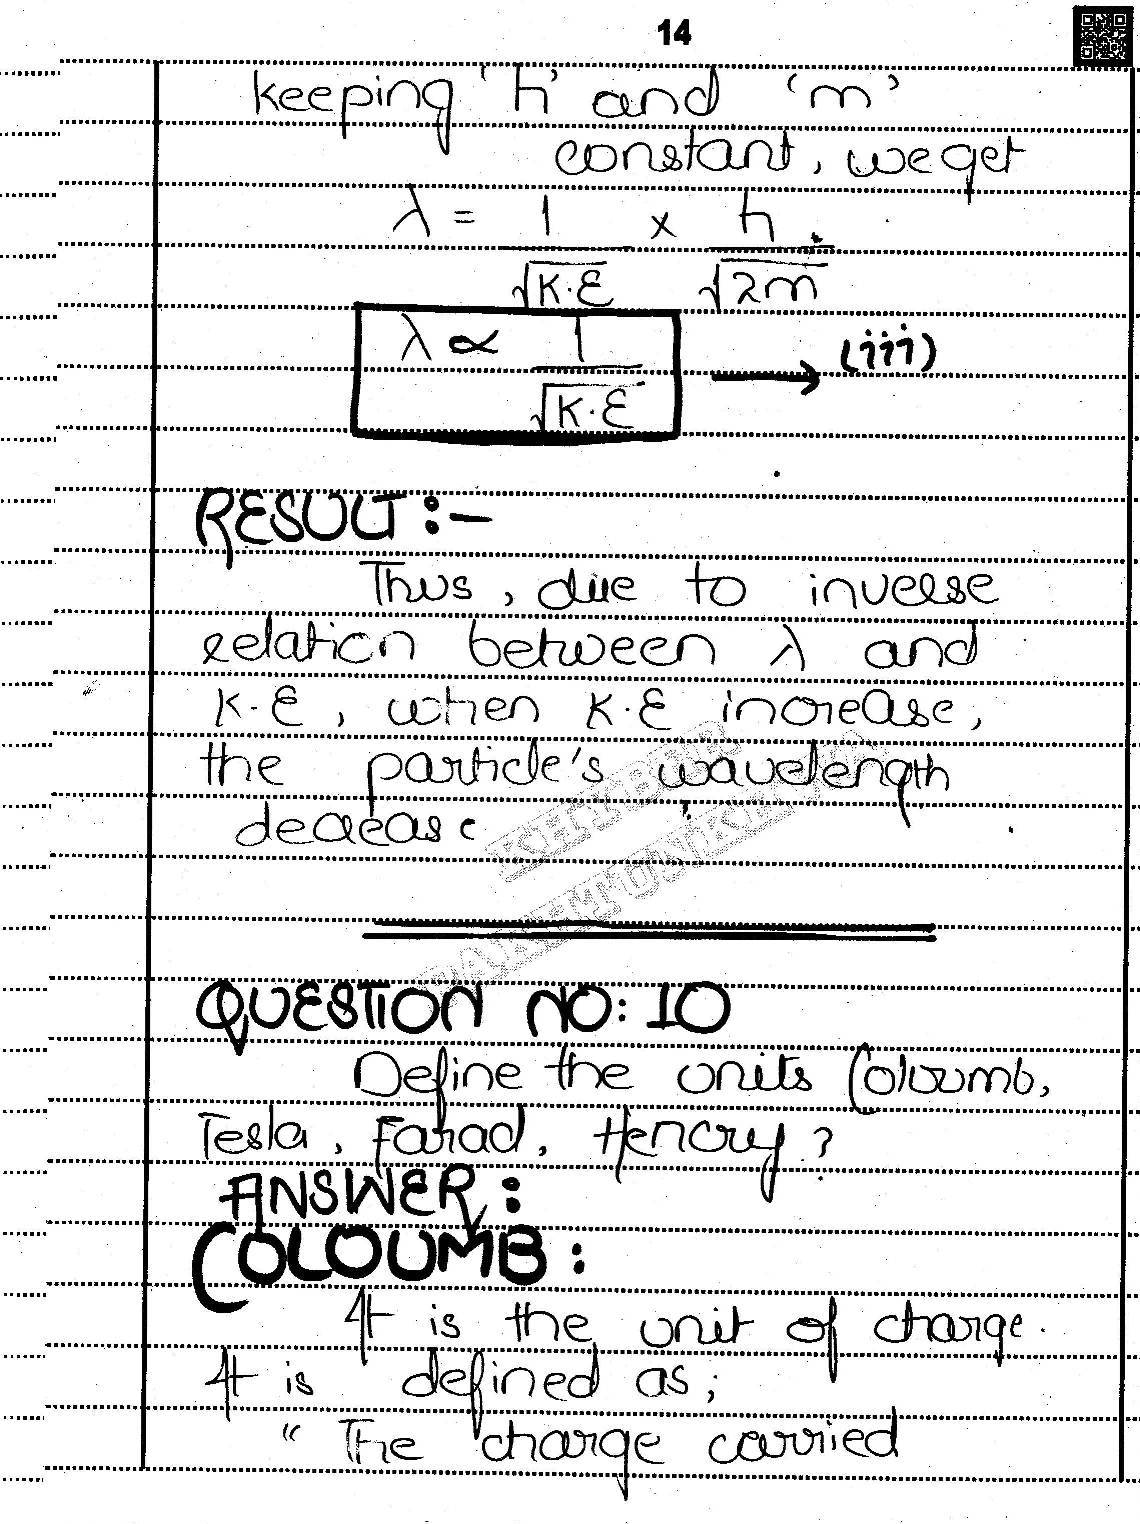 14
keeping 'h' and 'm'
constant, we get
λ = 1/√K.E × h/√2m
λ ∝ 1/√K.E → (iii)
RESULT :-
Thus, due to inverse
relation between λ and
K.E, when K.E increase,
the particle's wavelength
decrease
KHYBER
PAKHTUNKHWA
QUESTION NO: 10
Define the units Coloumb,
Tesla, Farad, Henory?
ANSWER:
COLOUMB:
It is the unit of charge.
It is defined as;
" The charge carried